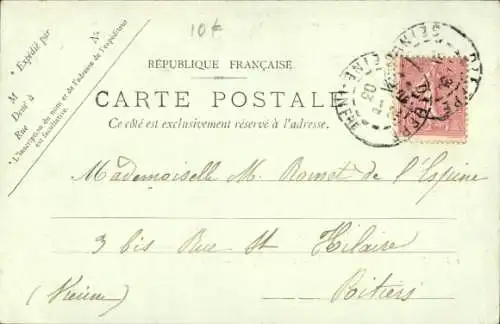 10 €
N°
* Expédié par
M
Demeurant à
Rue
* L'inscription du nom et de l'adresse de l'expéditeur
est facultative.
RÉPUBLIQUE FRANÇAISE
CARTE POSTALE
Ce côté est exclusivement réservé à l'adresse.
Mademoiselle M. Romet de l'Espine
3 bis Rue St Hilaire
Poitiers
(Vienne)